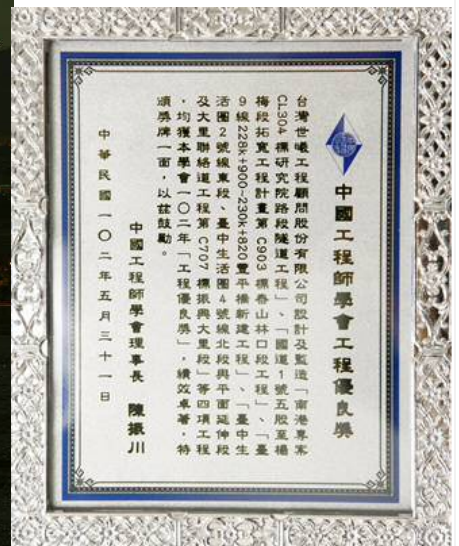 中國工程師學會工程優良獎
台灣世曦工程顧問股份有限公司設計及監造「南港專案
CL304標研究院路段隧道工程」、「國道1號五股至楊
梅段拓寬工程計畫第C903標泰山林口段工程」、「臺
9線228k+900~230k+820豐平橋新建工程」、「臺中生
活圈2號線東段、臺中生活圈4號線北段與平面延伸段
及大里聯絡道工程第C707標振興大里段」等四項工程
，均獲本學會一〇二年「工程優良獎」，績效卓著，特
頒獎牌一面，以茲鼓勵。
中國工程師學會理事長 陳振川
中華民國一〇二年五月三十一日